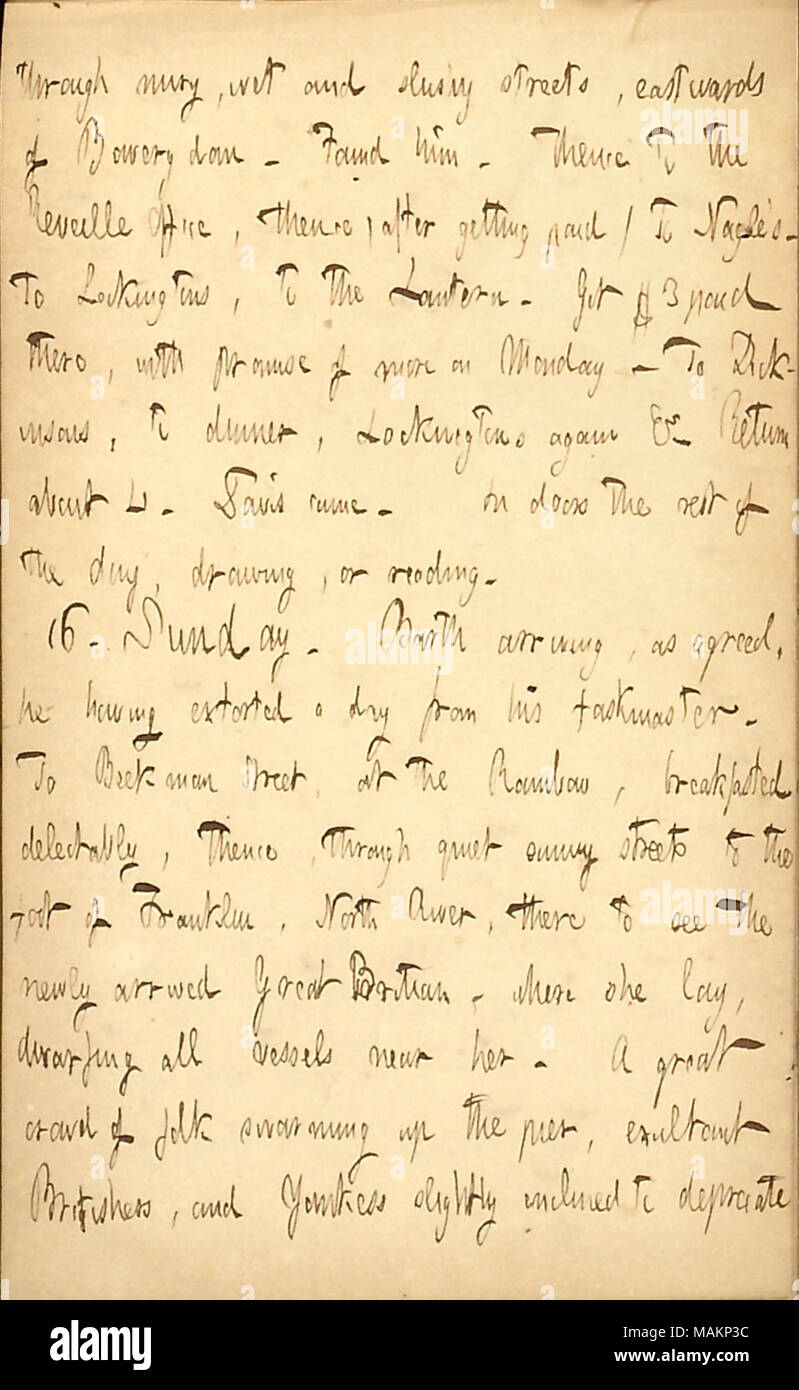 through miry, wet and slushy streets, eastwards
of Bowery dom - Found him - Thence to the
Reveille Office, thence (after getting paid) to Nagle's -
To Lockingtons, to the Lantern - Got $3 paid
there, with promise of more on Monday - To Dick-
insons, to dinner, Lockingtons again & Return
about 4 - Davis came - In doors the rest of
the day, drawing, or reading -
16 - Sunday - Barth arriving, as agreed,
he having extorted a day from his taskmaster -
To Beekman Street, at the Rainbow, breakfasted
delectably, thence, through quiet sunny streets to the
foot of Franklin, North River, there to see the
newly arrived Great Brittian - where she lay,
dwarfing all vessels near her - A great
crowd of folk swarming up the pier, exultant
Britishers, and Yankees slightly inclined to depreciate
alamy
Image ID: MAKP3C
www.alamy.com